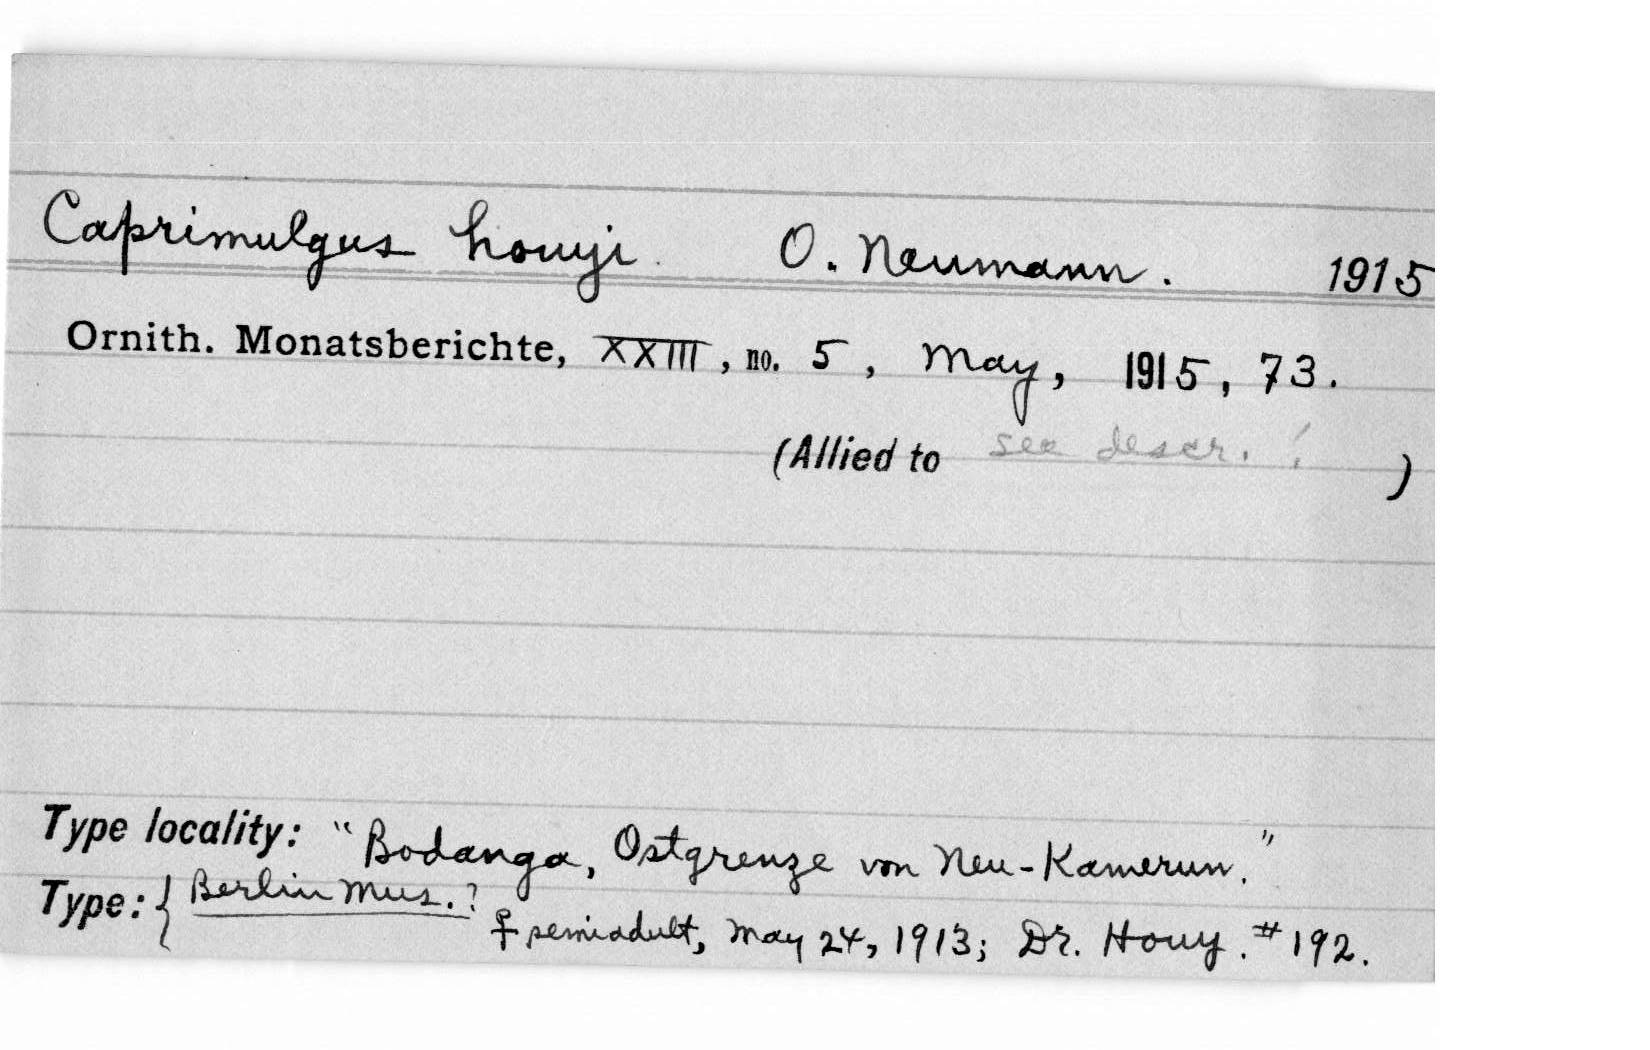 Caprimulgus houyi O. Neumann. 1915
Ornith. Monatsberichte, XXIII, no. 5, May, 1915, 73.
(Allied to see descr. ! )
Type locality: "Bodanga, Ostgrenze von Neu-Kamerun."
Type: { Berlin Mus. ?
♀ semiadult, May 24, 1913; Dr. Houy. #192.